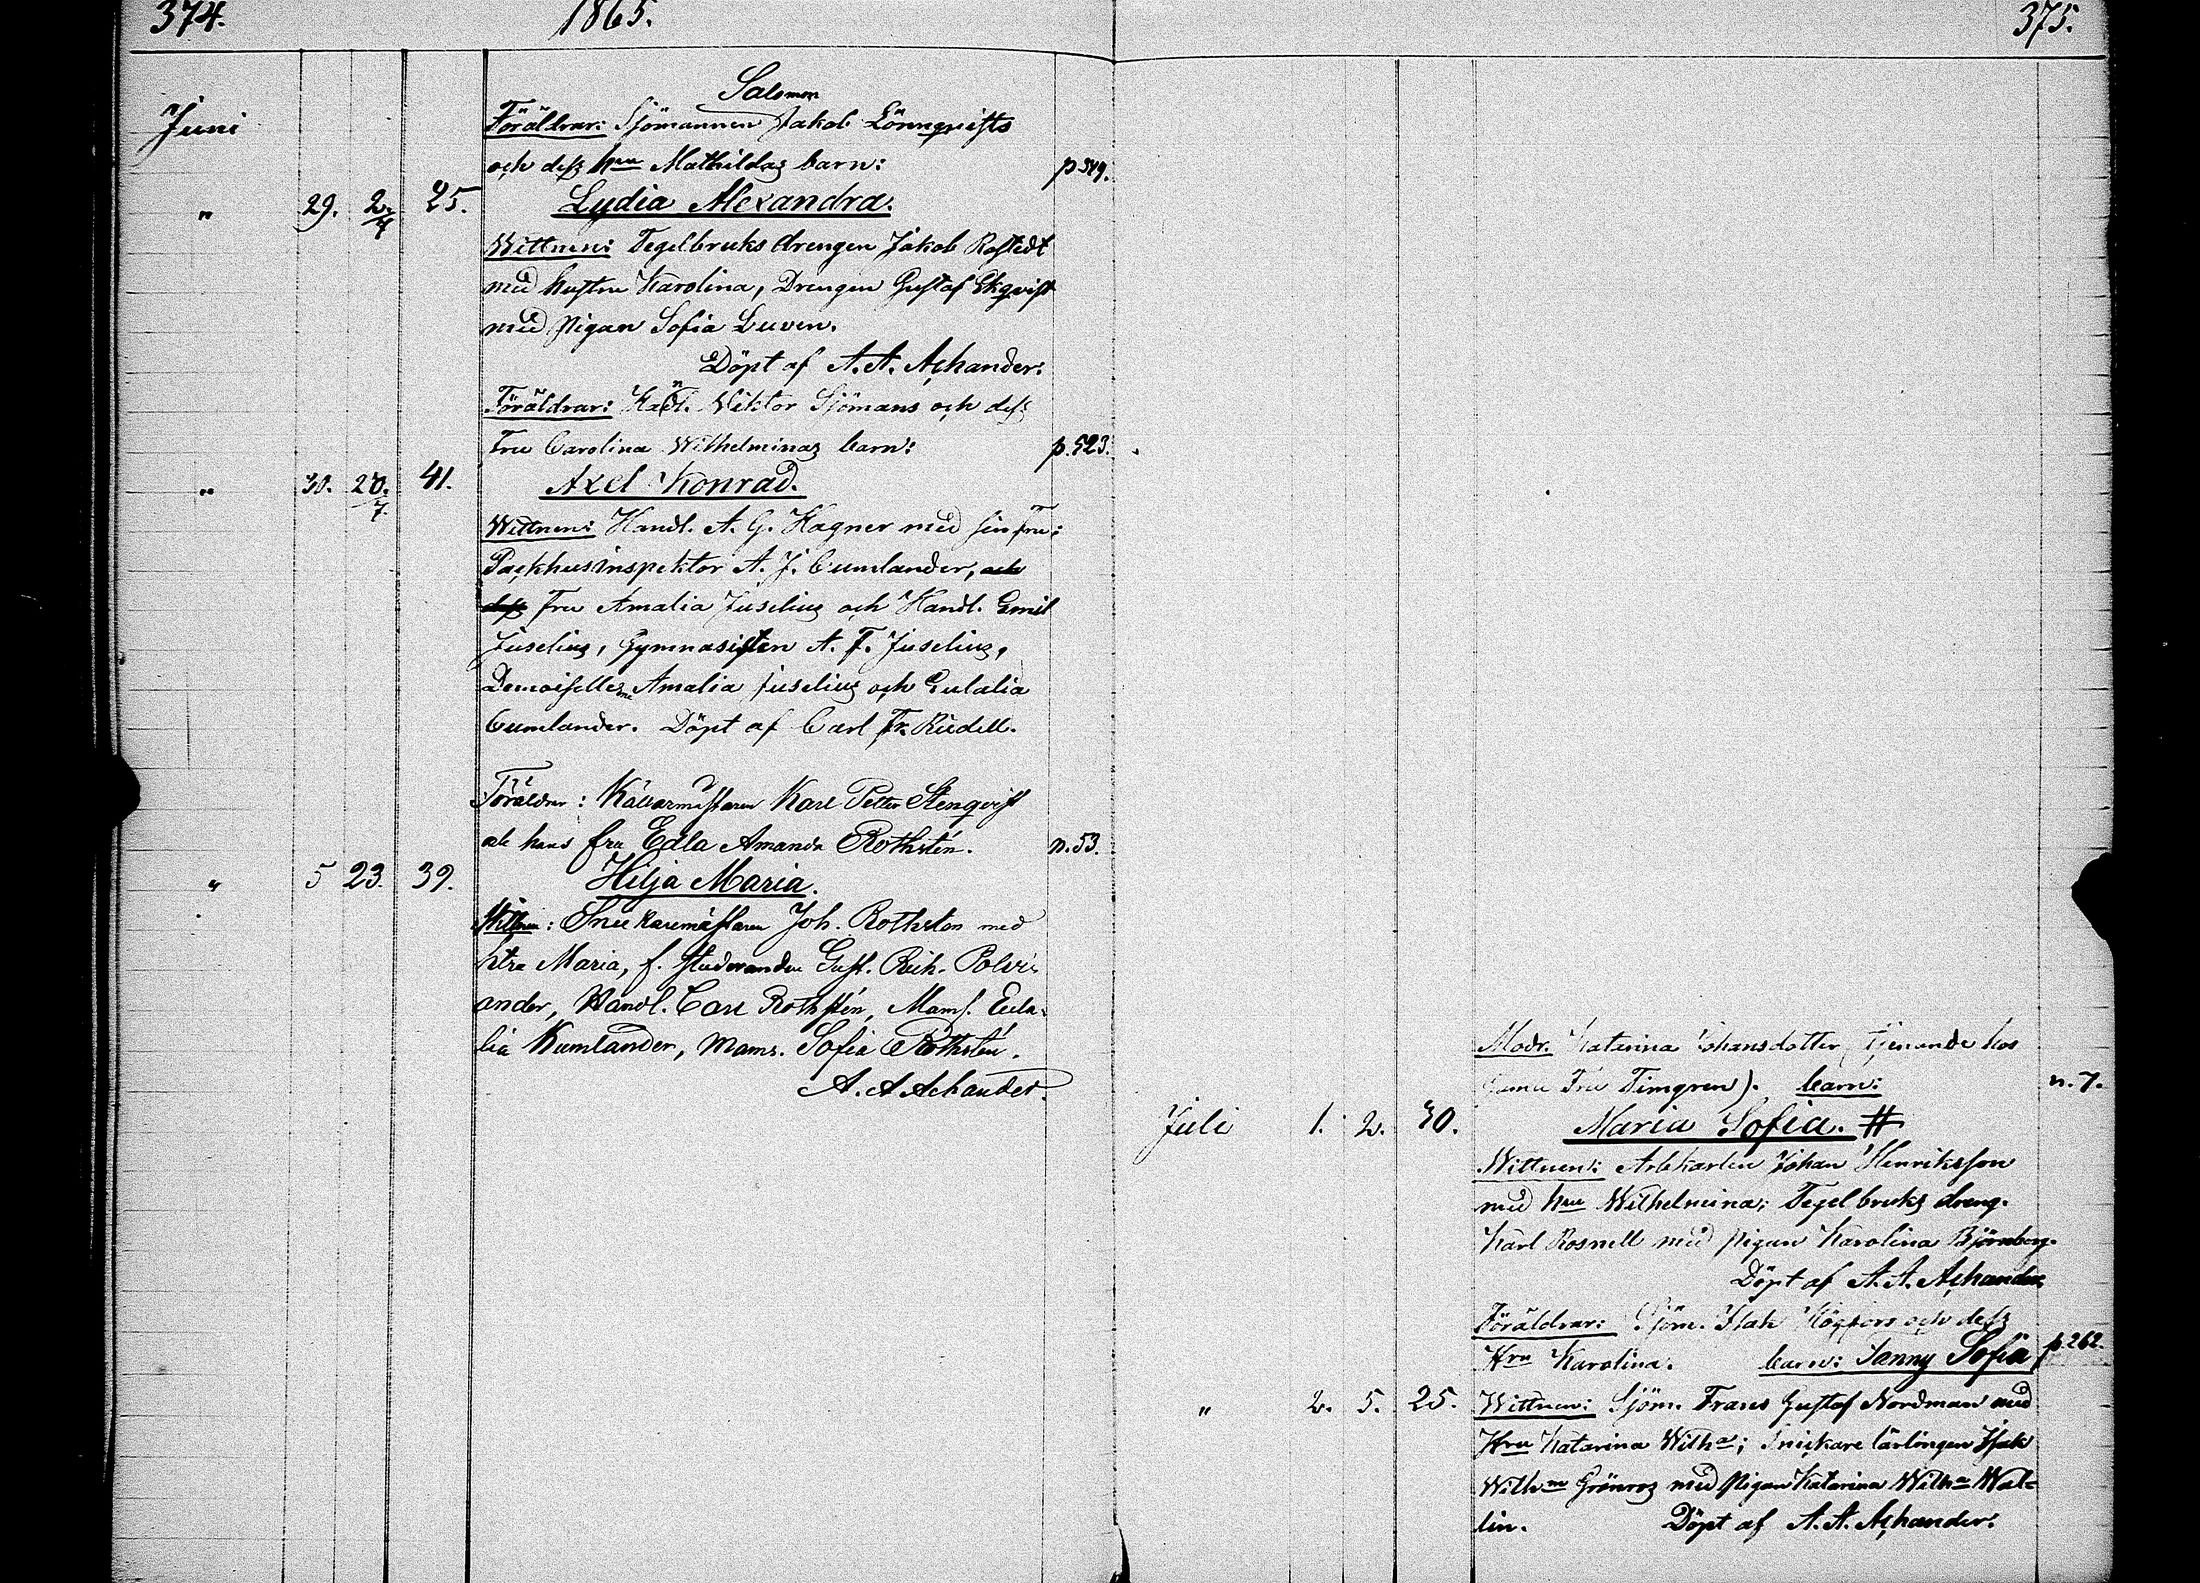 374.
1865.
Salomon
Juni
Föräldrar: Sjömannen Jakob Lönnqvists
och dess hru Mathildas barn:
" 29. 2./7 25. Lydia Alexandra.
Wittnen: Tegelbruks drengen Jakob Rostedt
med hustru Karolina, Drengen Gustaf Ekqvist
med pigan Sofia Luven.
Döpt af A. A. Achander.
Föräldrar: Viktor Sjömans och dess
Fru Carolina Wilhelminas barn: p. 523.
" 30. 20./7. 41. Axel Konrad.
Wittnen: Handl. A. G. Hagner med sin fru;
Packhusinspektor A. J. Cumlander, och
dess Fru Amalia Juselius och Handl. Emil
Juselius, Gymnasisten A. F. Juselius,
Demoisellerne Amalia Juselius och Eulalia
Cumlander. Döpt af Carl Fr. Riedell.
Föräldrar: Källarmästaren Karl Petter Stenqvist
och hans fru Edla Amanda Rothstén. n. 53.
" 5 23. 39. Hilja Maria.
Wittnen: Snickaremästaren Joh. Rothsten med
htru Maria, f. studeranden Gust. Rich. Polvi-
ander, Handl. Carl Rothstén, Mams. Eula-
lia Kumlander, Mams. Sofia Rothstén.
A. A Achander.
375.
Modr. Katarina Johansdotter (tjenande hos
Fru Timgren). barn: n. 7.
Juli 1. 2. 30. Maria Sofia. #
Wittnen: Arbkarlen Johan Henriksson
med hru Wilhelmina; Tegelbruks dreng.
Karl Rosnell med pigan Karolina Björnberg.
Döpt af A. A. Achander
Föräldrar: Sjöm. Isak Högfors och dess
Hru Karolina. barn: Fanny Sofia p. 262.
" 2. 5. 25. Wittnen: Sjöm. Frans Gustaf Nordman med
Hru Katarina Wilha; Snickare lärlingen Isak
Wilhm Grönros med pigan Katarina Wilha Wal-
lin. Döpt af A. A. Achander.